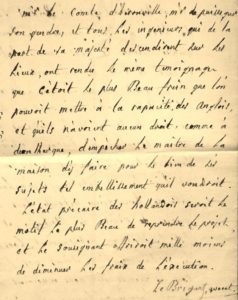 Mr le Comte d'hérouville, Mr de puisegur
son gendre, et tous les ingenieurs, qui de la
part de sa majesté descendirent sur les
lieux, ont rendu le meme temoignage
que c'étoit le plus Beau frein que l'on
pouvoit mettre à la rapacité des Anglois,
et qu'ils n'avoient aucun droit, comme à
dunkerque, d'empecher le maitre de la
maison d'y faire pour le bien de ses
sujets tel embellissement qu'il voudroit.
L'état précaire des hollandois seroit le
motif le plus Beau de reprendre le projet,
et le soussigné offriroit mille moiens
de diminuer les frais de l'execution.
Le Brigant, avocat.